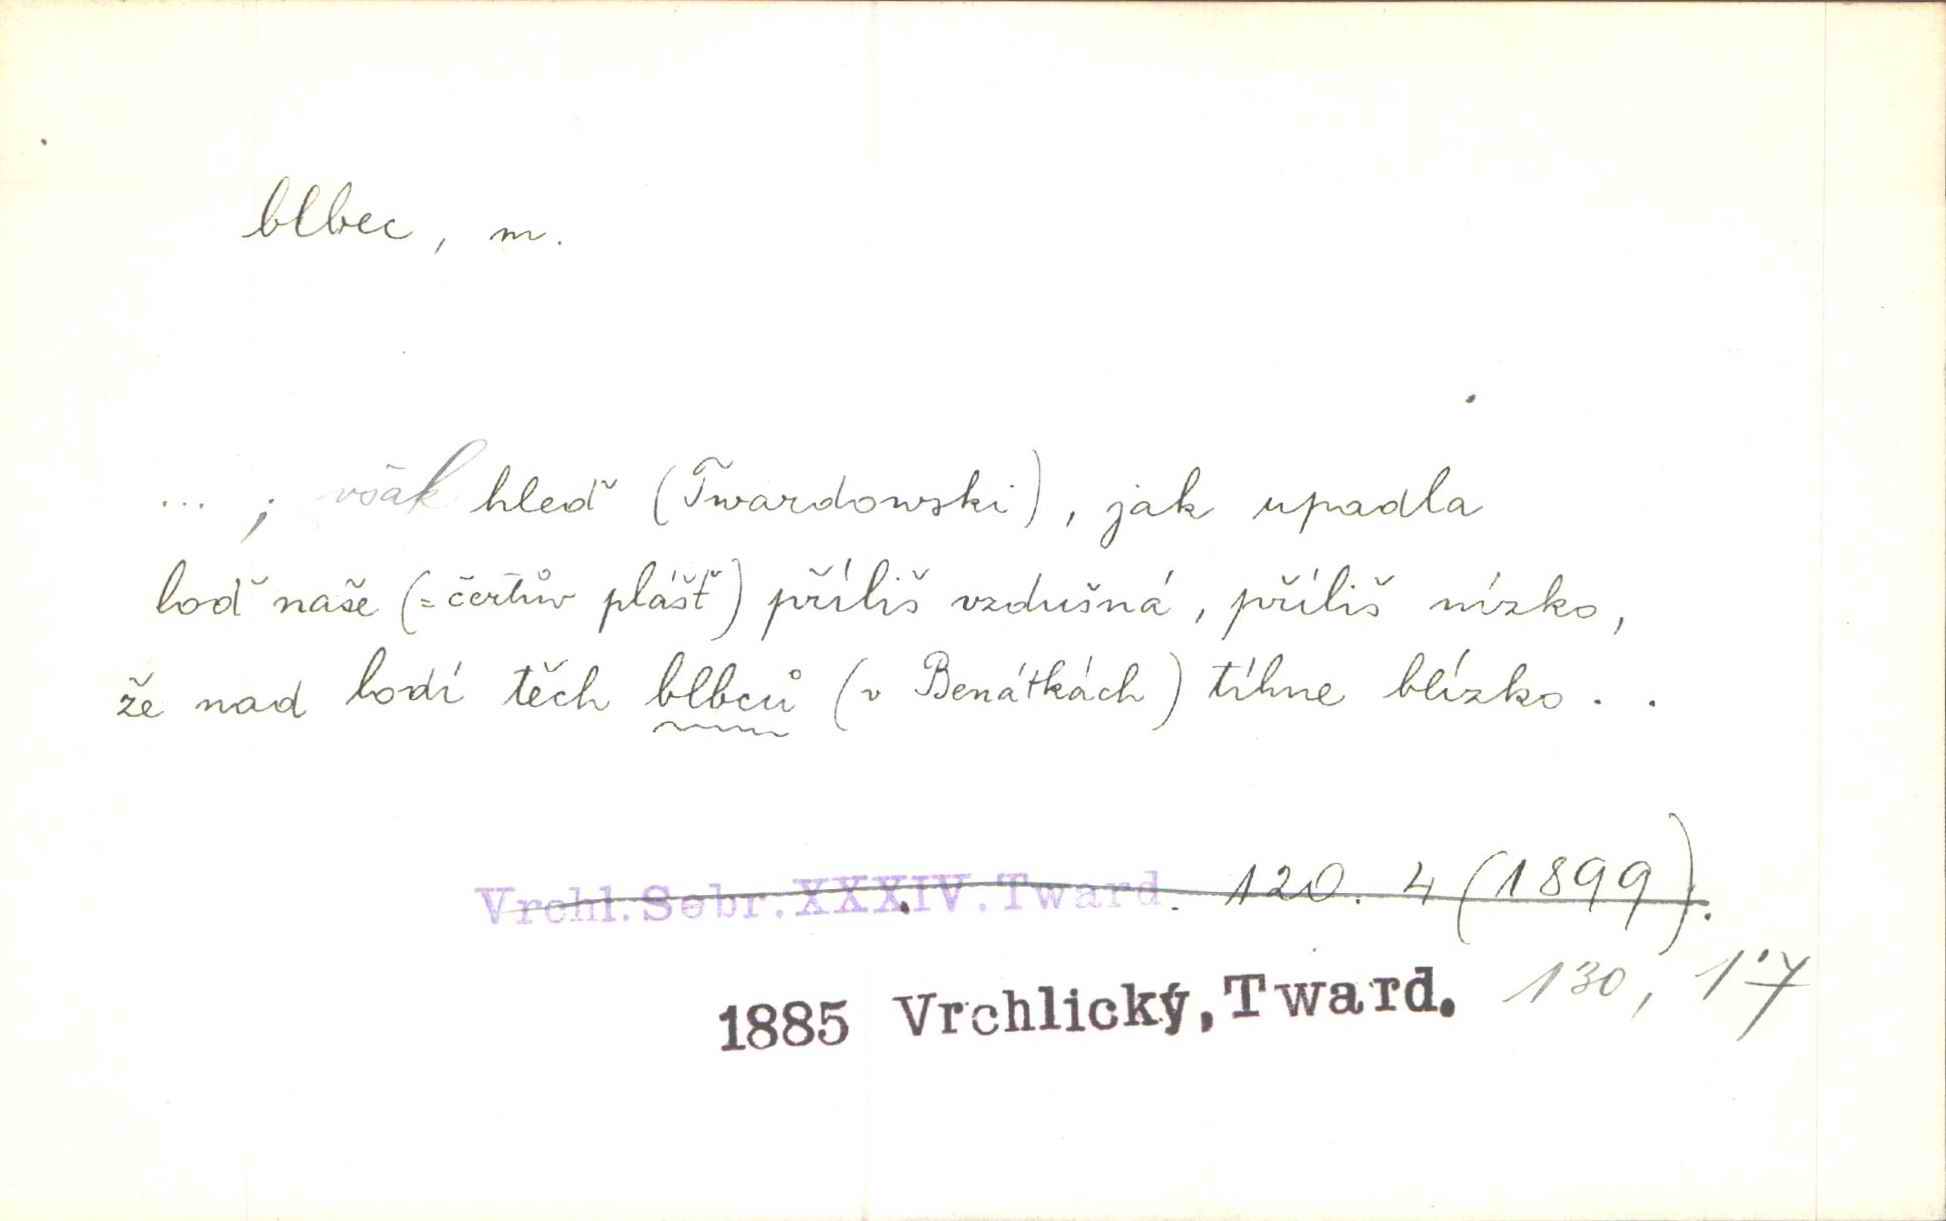 blbec, m.
... ; však hleď (Twardowski), jak upadla
loď naše (= čertův plášť) příliš vzdušná, příliš nízko,
že nad lodí těch blbců (v Benátkách) tíhne blízko . .
Vrchl. Sebr. XXXIV. Tward. 120. 4 (1899).
1885 Vrchlický, Tward. 130, 17